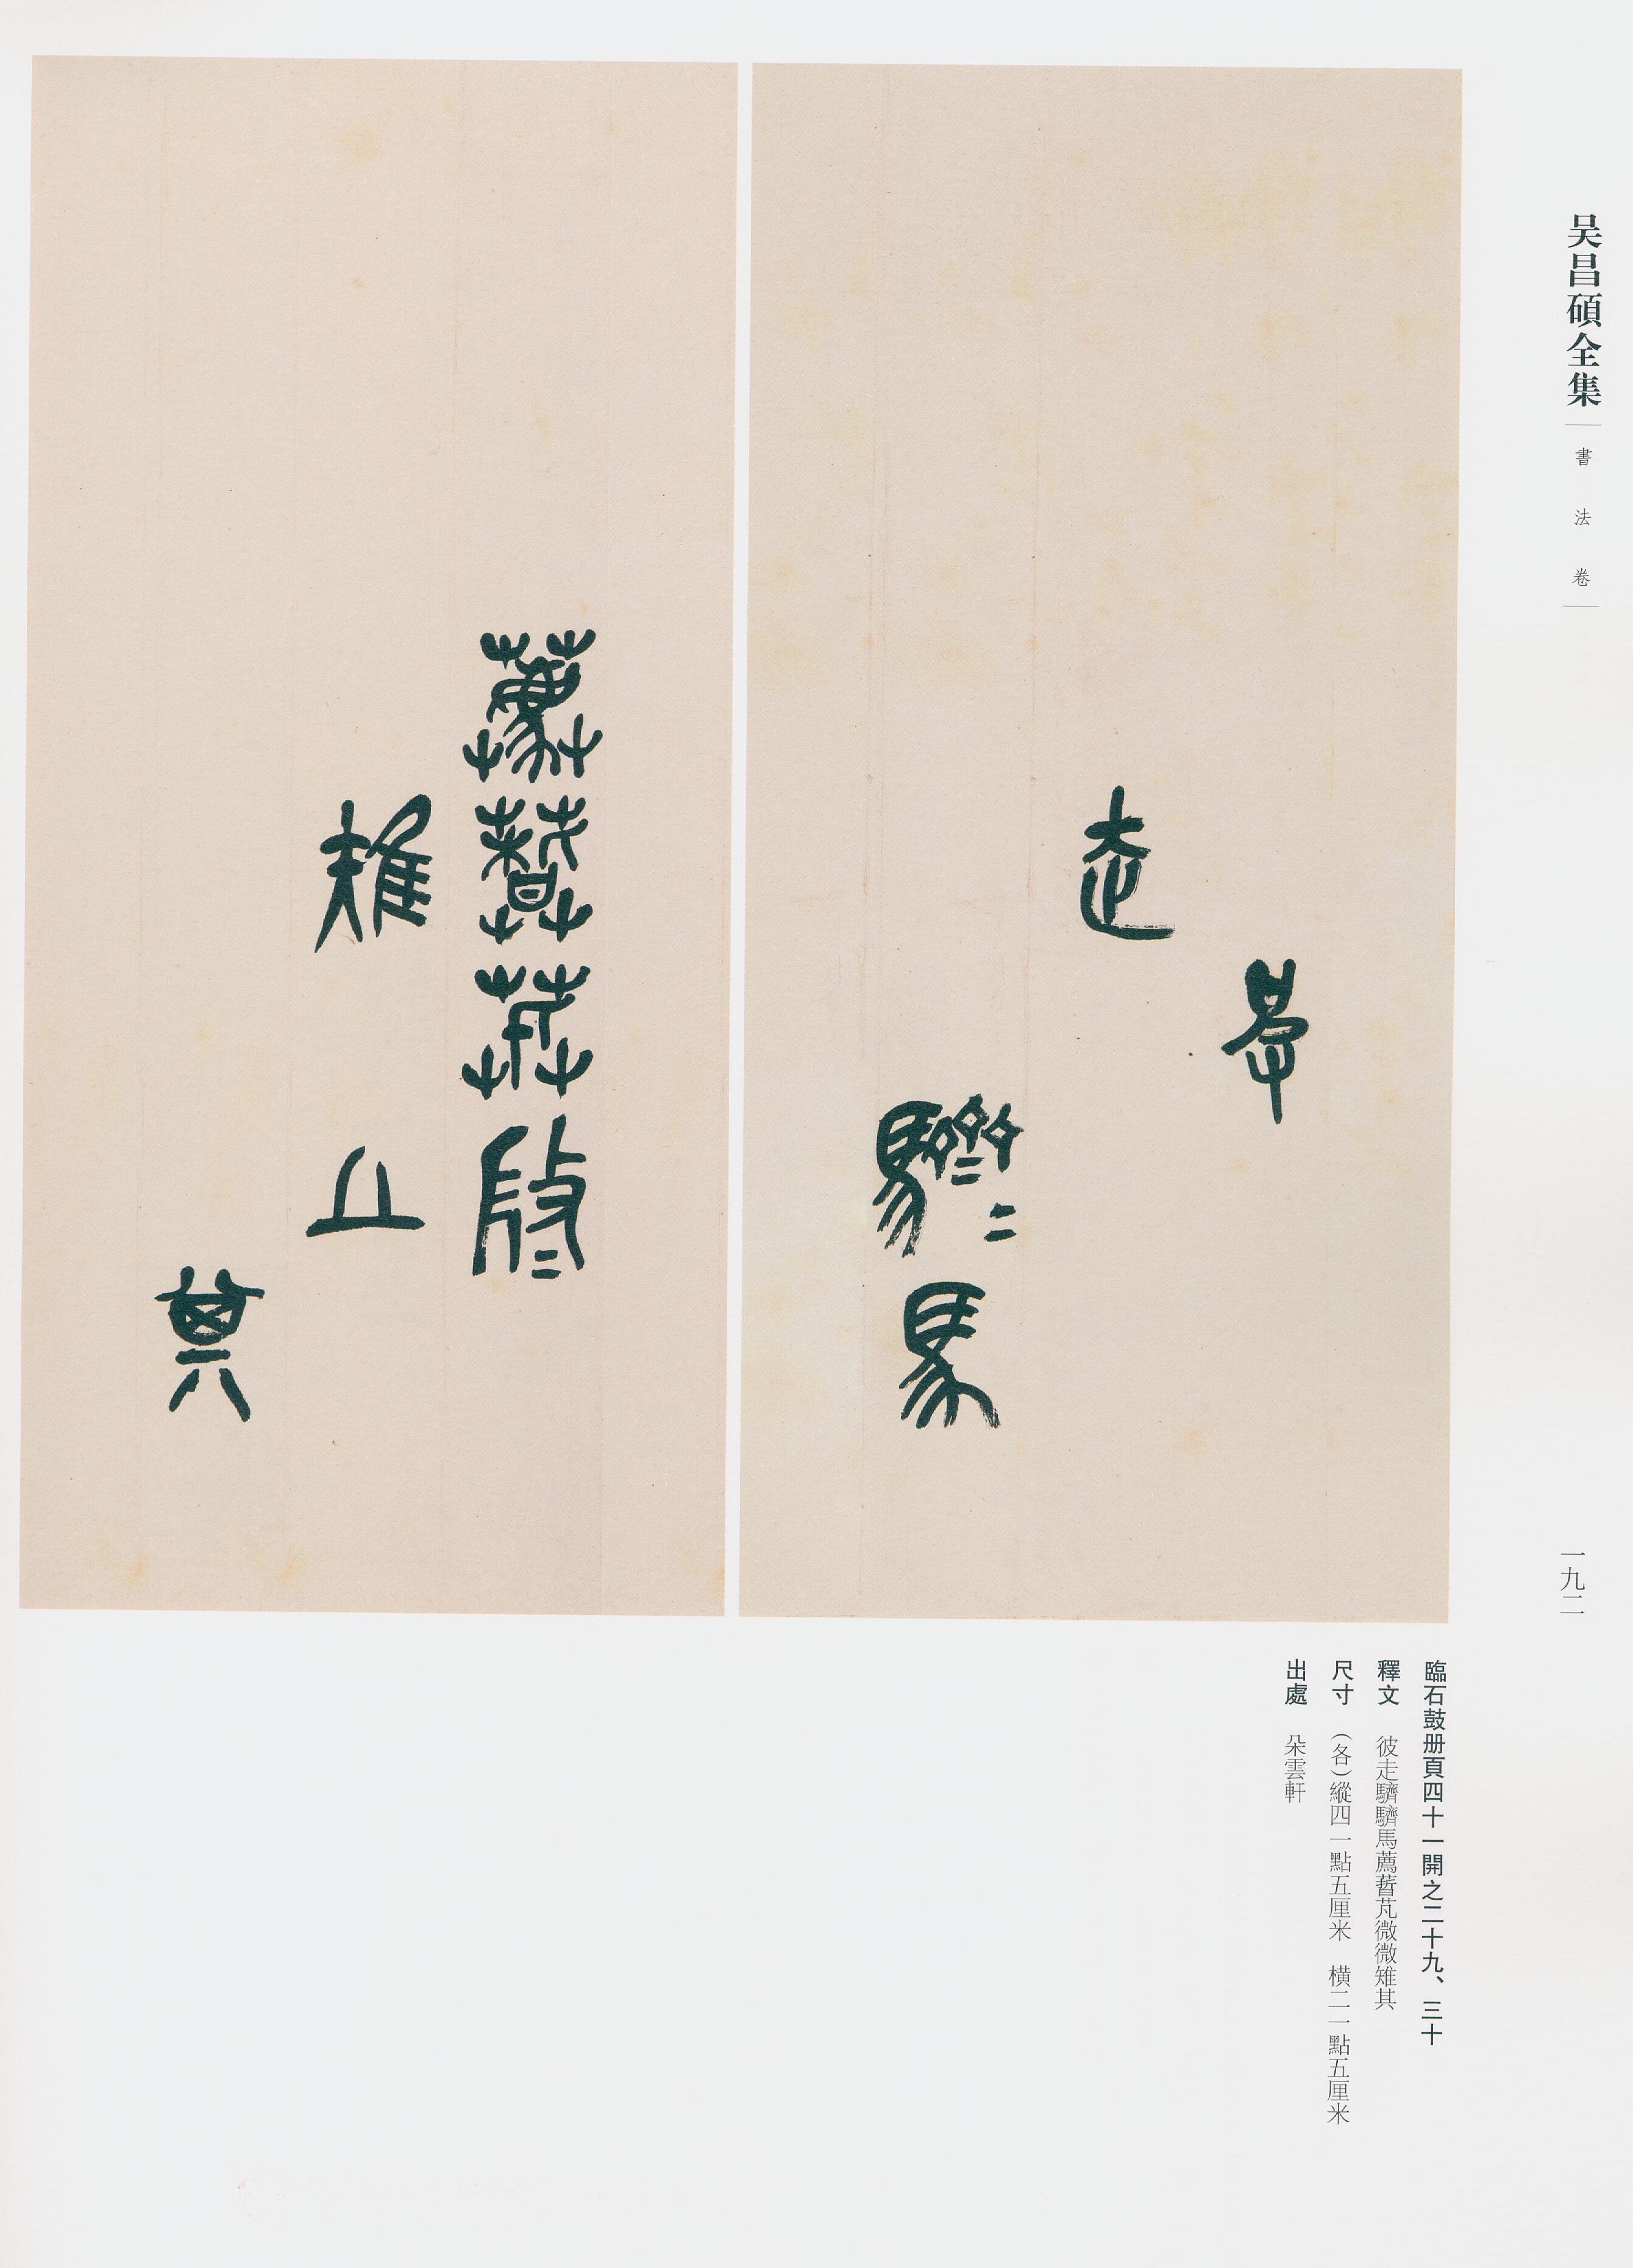 吴昌碩全集
書法卷
一九二
走
驕=
馬
薦蓍芃𢼸=
雉
其
臨石鼓册頁四十一開之二十九、三十
釋文 彼走驕驕馬薦蓍芃微微雉其
尺寸 （各）縱四一點五厘米 横二一點五厘米
出處 朵雲軒